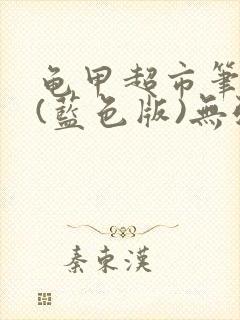 龟甲超市筆
(藍色版)無
秦東漢